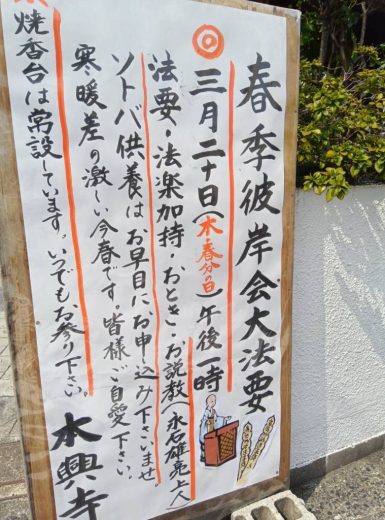 春季彼岸会大法要
◎三月二十日（木・春分の日）午後一時
法要・法楽加持・おとき・お説教（永石雄亮上人）
ソトバ供養はお早目に、お申込み下さいませ
寒暖差の激しい今春です。皆様ご自愛下さい。
※焼香台は常設しています。いつでも、お参り下さい。
本興寺